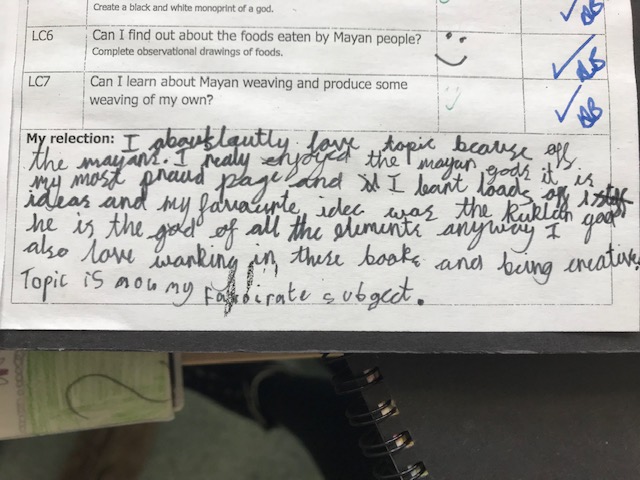 Create a black and white monoprint of a god.
LC6 Can I find out about the foods eaten by Mayan people?
Complete observational drawings of foods.
LC7 Can I learn about Mayan weaving and produce some
weaving of my own?
My relection: I aboutslautly love topic bcause off
the mayans. I realy enjoyed the mayan gods it is
my most proud page and I leant loads off
ideas and my favaourite idec was the Kuklcan god
he is the god of all the elements anyway I
also love warking in these books and being creative
Topic is now my subgect.